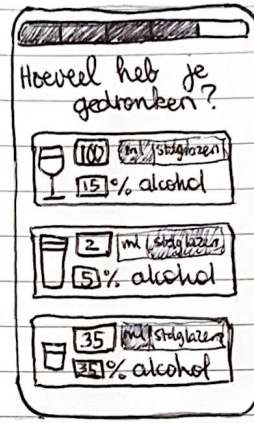 Hoeveel heb je
gedronken?
100 ml stdglazen
15 % alcohol
2 ml stdglazen
5 % alcohol
35 ml stdglazen
35 % alcohol